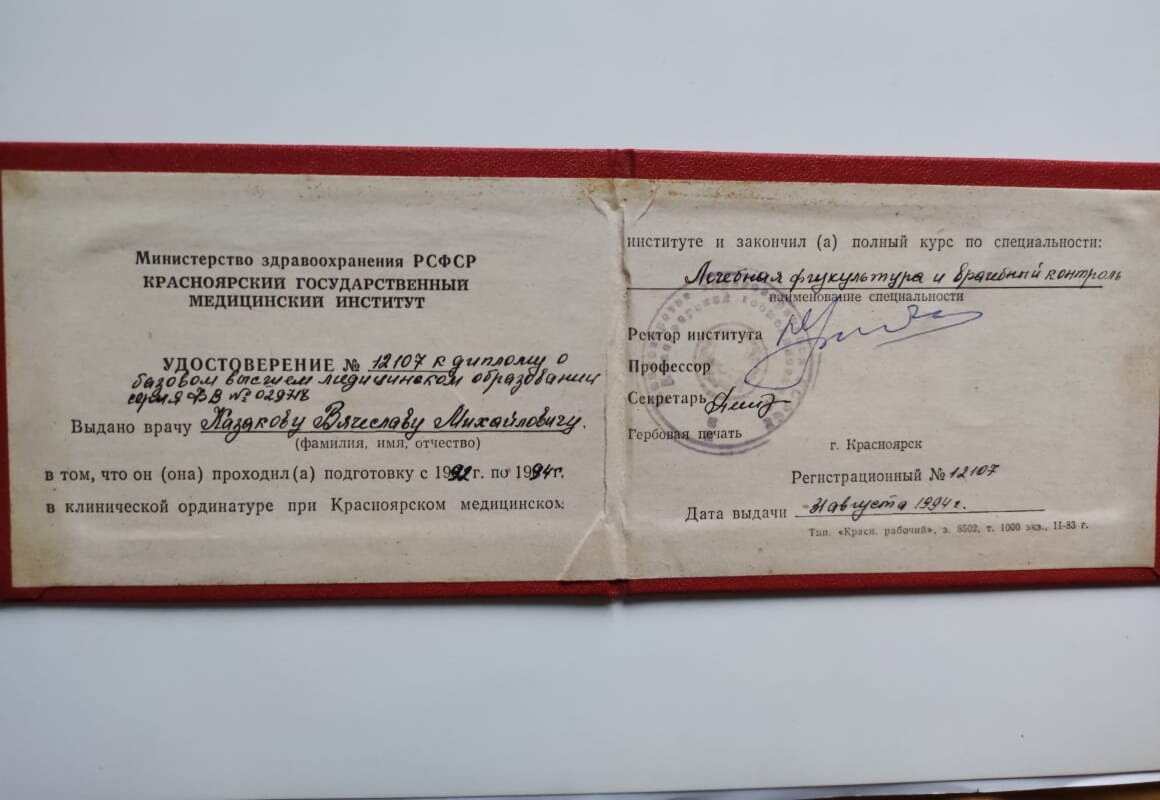 Министерство здравоохранения РСФСР
КРАСНОЯРСКИЙ ГОСУДАРСТВЕННЫЙ
МЕДИЦИНСКИЙ ИНСТИТУТ
УДОСТОВЕРЕНИЕ № 12107 к диплому о
базовом высшем медицинском образовании
серия ФВ № 029718
Выдано врачу Казакову Вячеславу Михайловичу.
(фамилия, имя, отчество)
в том, что он (она) проходил(а) подготовку с 1992г. по 1994г.
в клинической ординатуре при Красноярском медицинском
институте и закончил (а) полный курс по специальности:
Лечебная физкультура и врачебный контроль
наименование специальности
Ректор института
Профессор
Секретарь
Гербовая печать
г. Красноярск
Регистрационный № 12107
Дата выдачи 31 августа 1994г.
Тип. «Красн. рабочий», з. 8502, т. 1000 экз., II-83 г.